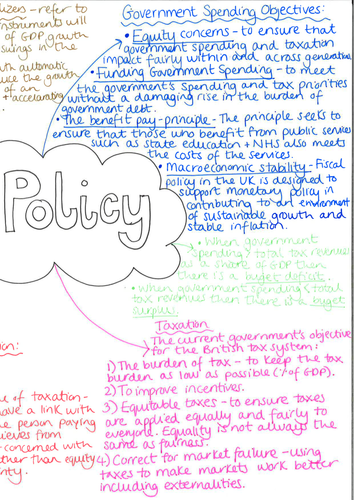 Government Spending Objectives:
• Equity concerns - to ensure that
government spending and taxation
impact fairly within and across generations
• Funding Government Spending - to meet
the government's spending and tax priorities
without a damaging rise in the burden of
government debt.
• The benefit pay-principle - The principle seeks to
ensure that those who benefit from public services
such as state education + NHS also meets
the costs of the services.
• Macroeconomic stability - Fiscal
policy in the UK is designed to
support monetary policy in
contributing to an environment
of sustainable growth and
stable inflation.
lizers - refer to
instruments will
of GDP growth
swings in the
th automatic
uce the growth
of an
+ accelerating
Policy
• When government
spending > total tax revenues
as a share of GDP then
there is a buget deficit.
• When government spending < total
tax revenues then there is a buget
surplus.
Taxation
The current government's objective
for the British tax system:
1) The burden of tax - to keep the tax
burden as low as possible (% of GDP).
2) To improve incentives.
3) Equitable taxes - to ensure taxes
are applied equally and fairly to
everyone. Equality is not always the
same as fairness.
4) Correct for market failure - using
taxes to make markets work better
including externalities.
on:
e of taxation -
ave a link with
e person paying
ieves from
concerned with
ther than equity
nty.